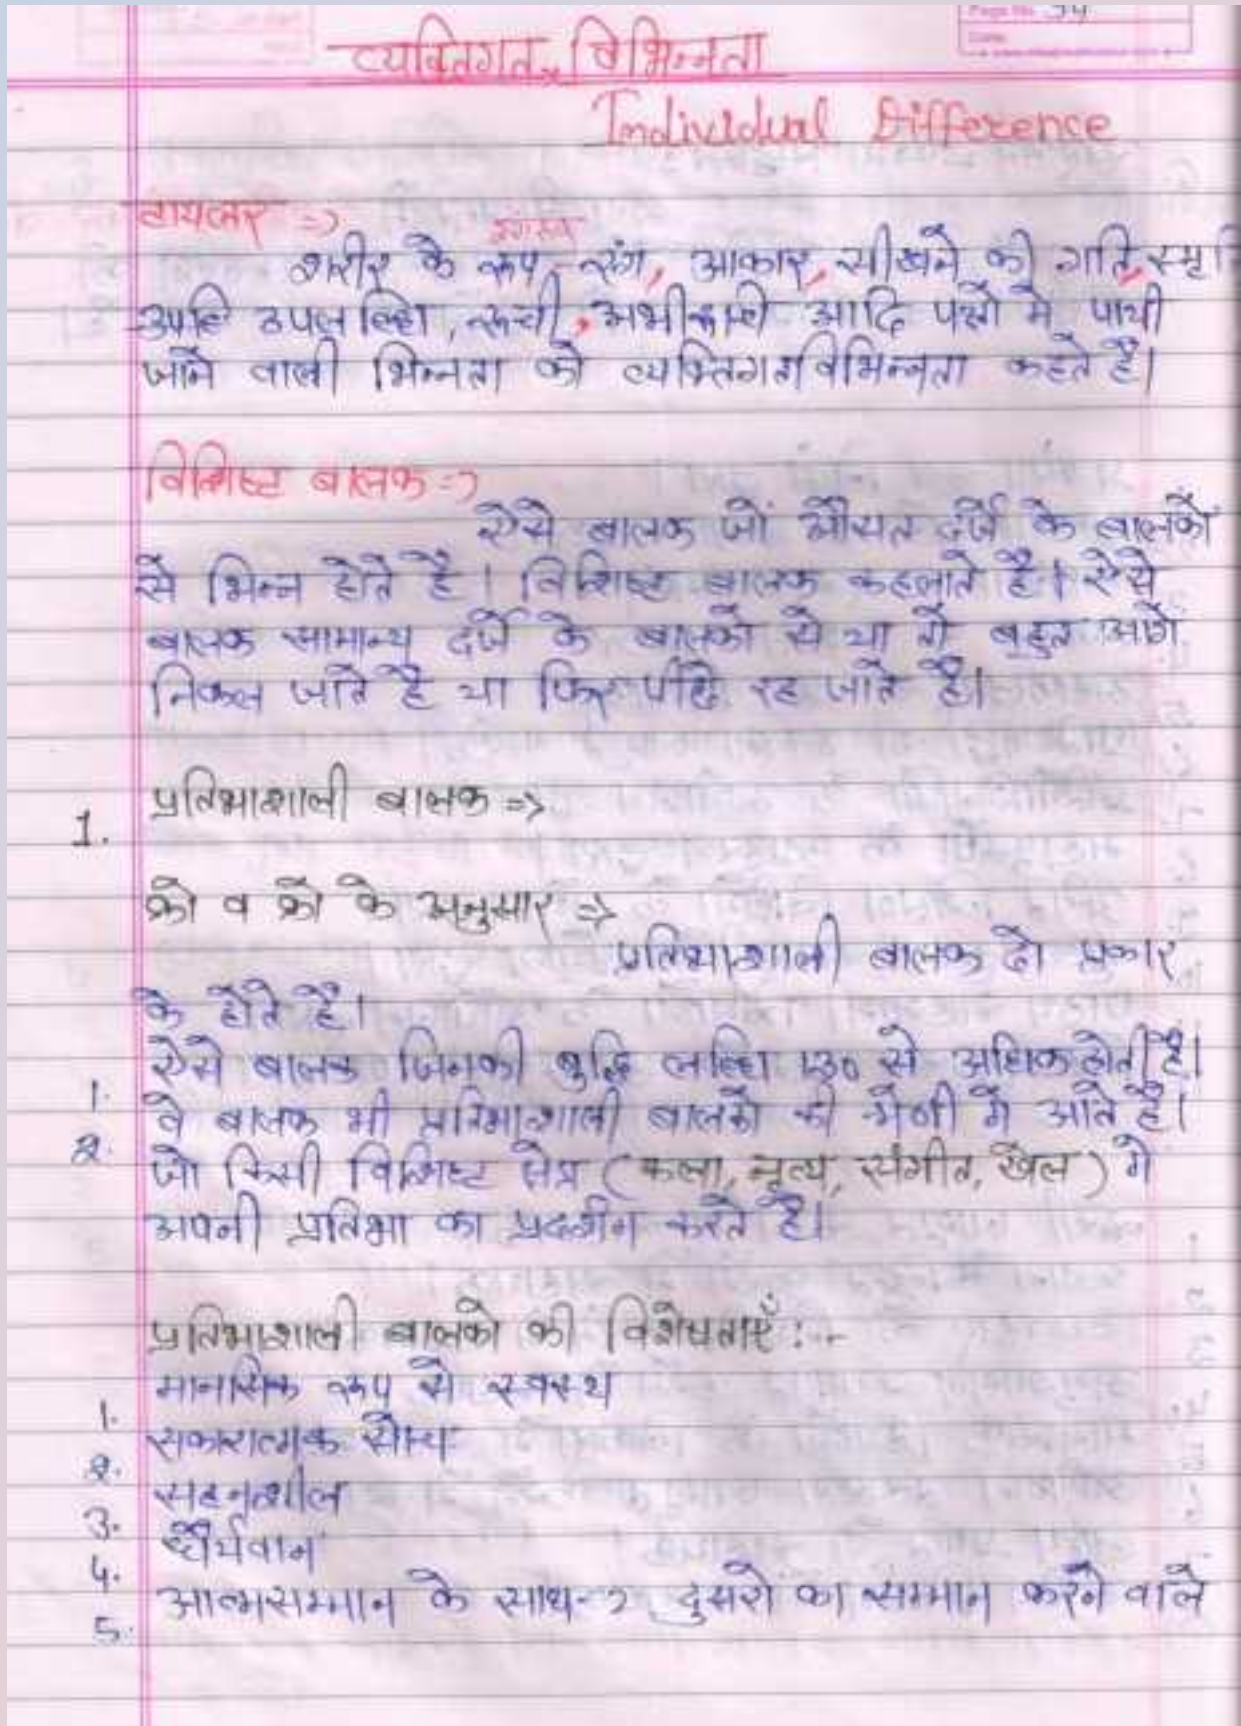 Page No. 34
Date
व्यक्तिगत विभिन्नता
Individual Difference
टायलर =>
शरीर के रूप, रंग, आकार, सीखने की गति, स्मृति
उपलब्धि, रूची, अभी आदि पक्षो मे पायी
जाने वाली भिन्नता को व्यक्तिगत विभिन्नता कहते है।
विशिष्ट बालक =>
ऐसे बालक जों औसत दर्जे के बालकों
से भिन्न होते है। विशिष्ट बालक कहलाते है। ऐसे
बालक सामान्य दर्जे के बालकों से या तो बहुत आगे
निकल जाते है या फिर पीछे रह जाते है।
1. प्रतिभाशाली बालक =>
क्रो व क्रो के अनुसार =>
प्रतिभाशाली बालक दो प्रकार
के होते है।
1. ऐसे बालक जिनकी बुद्धि लब्धि 130 से अधिक होती है।
2. वे बालक भी प्रतिभाशाली बालको की श्रेणी में आते है।
जो किसी विशिष्ट क्षेत्र (कला, नृत्य, संगीत, खेल) में
अपनी प्रतिभा का प्रदर्शन करते है।
प्रतिभाशाली बालको की विशेषताएँ :-
1. मानसिक रूप से स्वस्थ
2. सकारात्मक सोच
3. सहनशील
4. धैर्यवान
5. आत्मसम्मान के साथ-2 दुसरो का सम्मान करने वाले